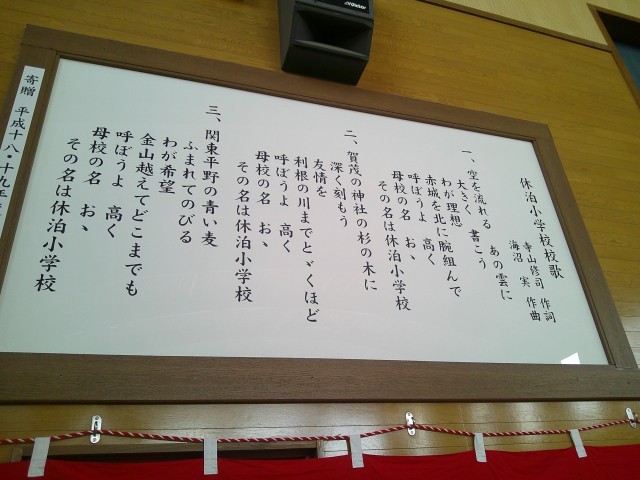 休泊小学校校歌
寺山修司 作詞
海沼 実 作曲
一、空を流れる あの雲に
大きく 書こう
わが理想
赤城を北に腕組んで
呼ぼうよ 高く
母校の名 おゝ
その名は休泊小学校
二、賀茂の神社の杉の木に
深く刻もう
友情を
利根の川までとゞくほど
呼ぼうよ 高く
母校の名 おゝ
その名は休泊小学校
三、関東平野の青い麦
ふまれてのびる
わが希望
金山越えてどこまでも
呼ぼうよ 高く
母校の名 おゝ
その名は休泊小学校
寄贈 平成十八・十九年
Victor